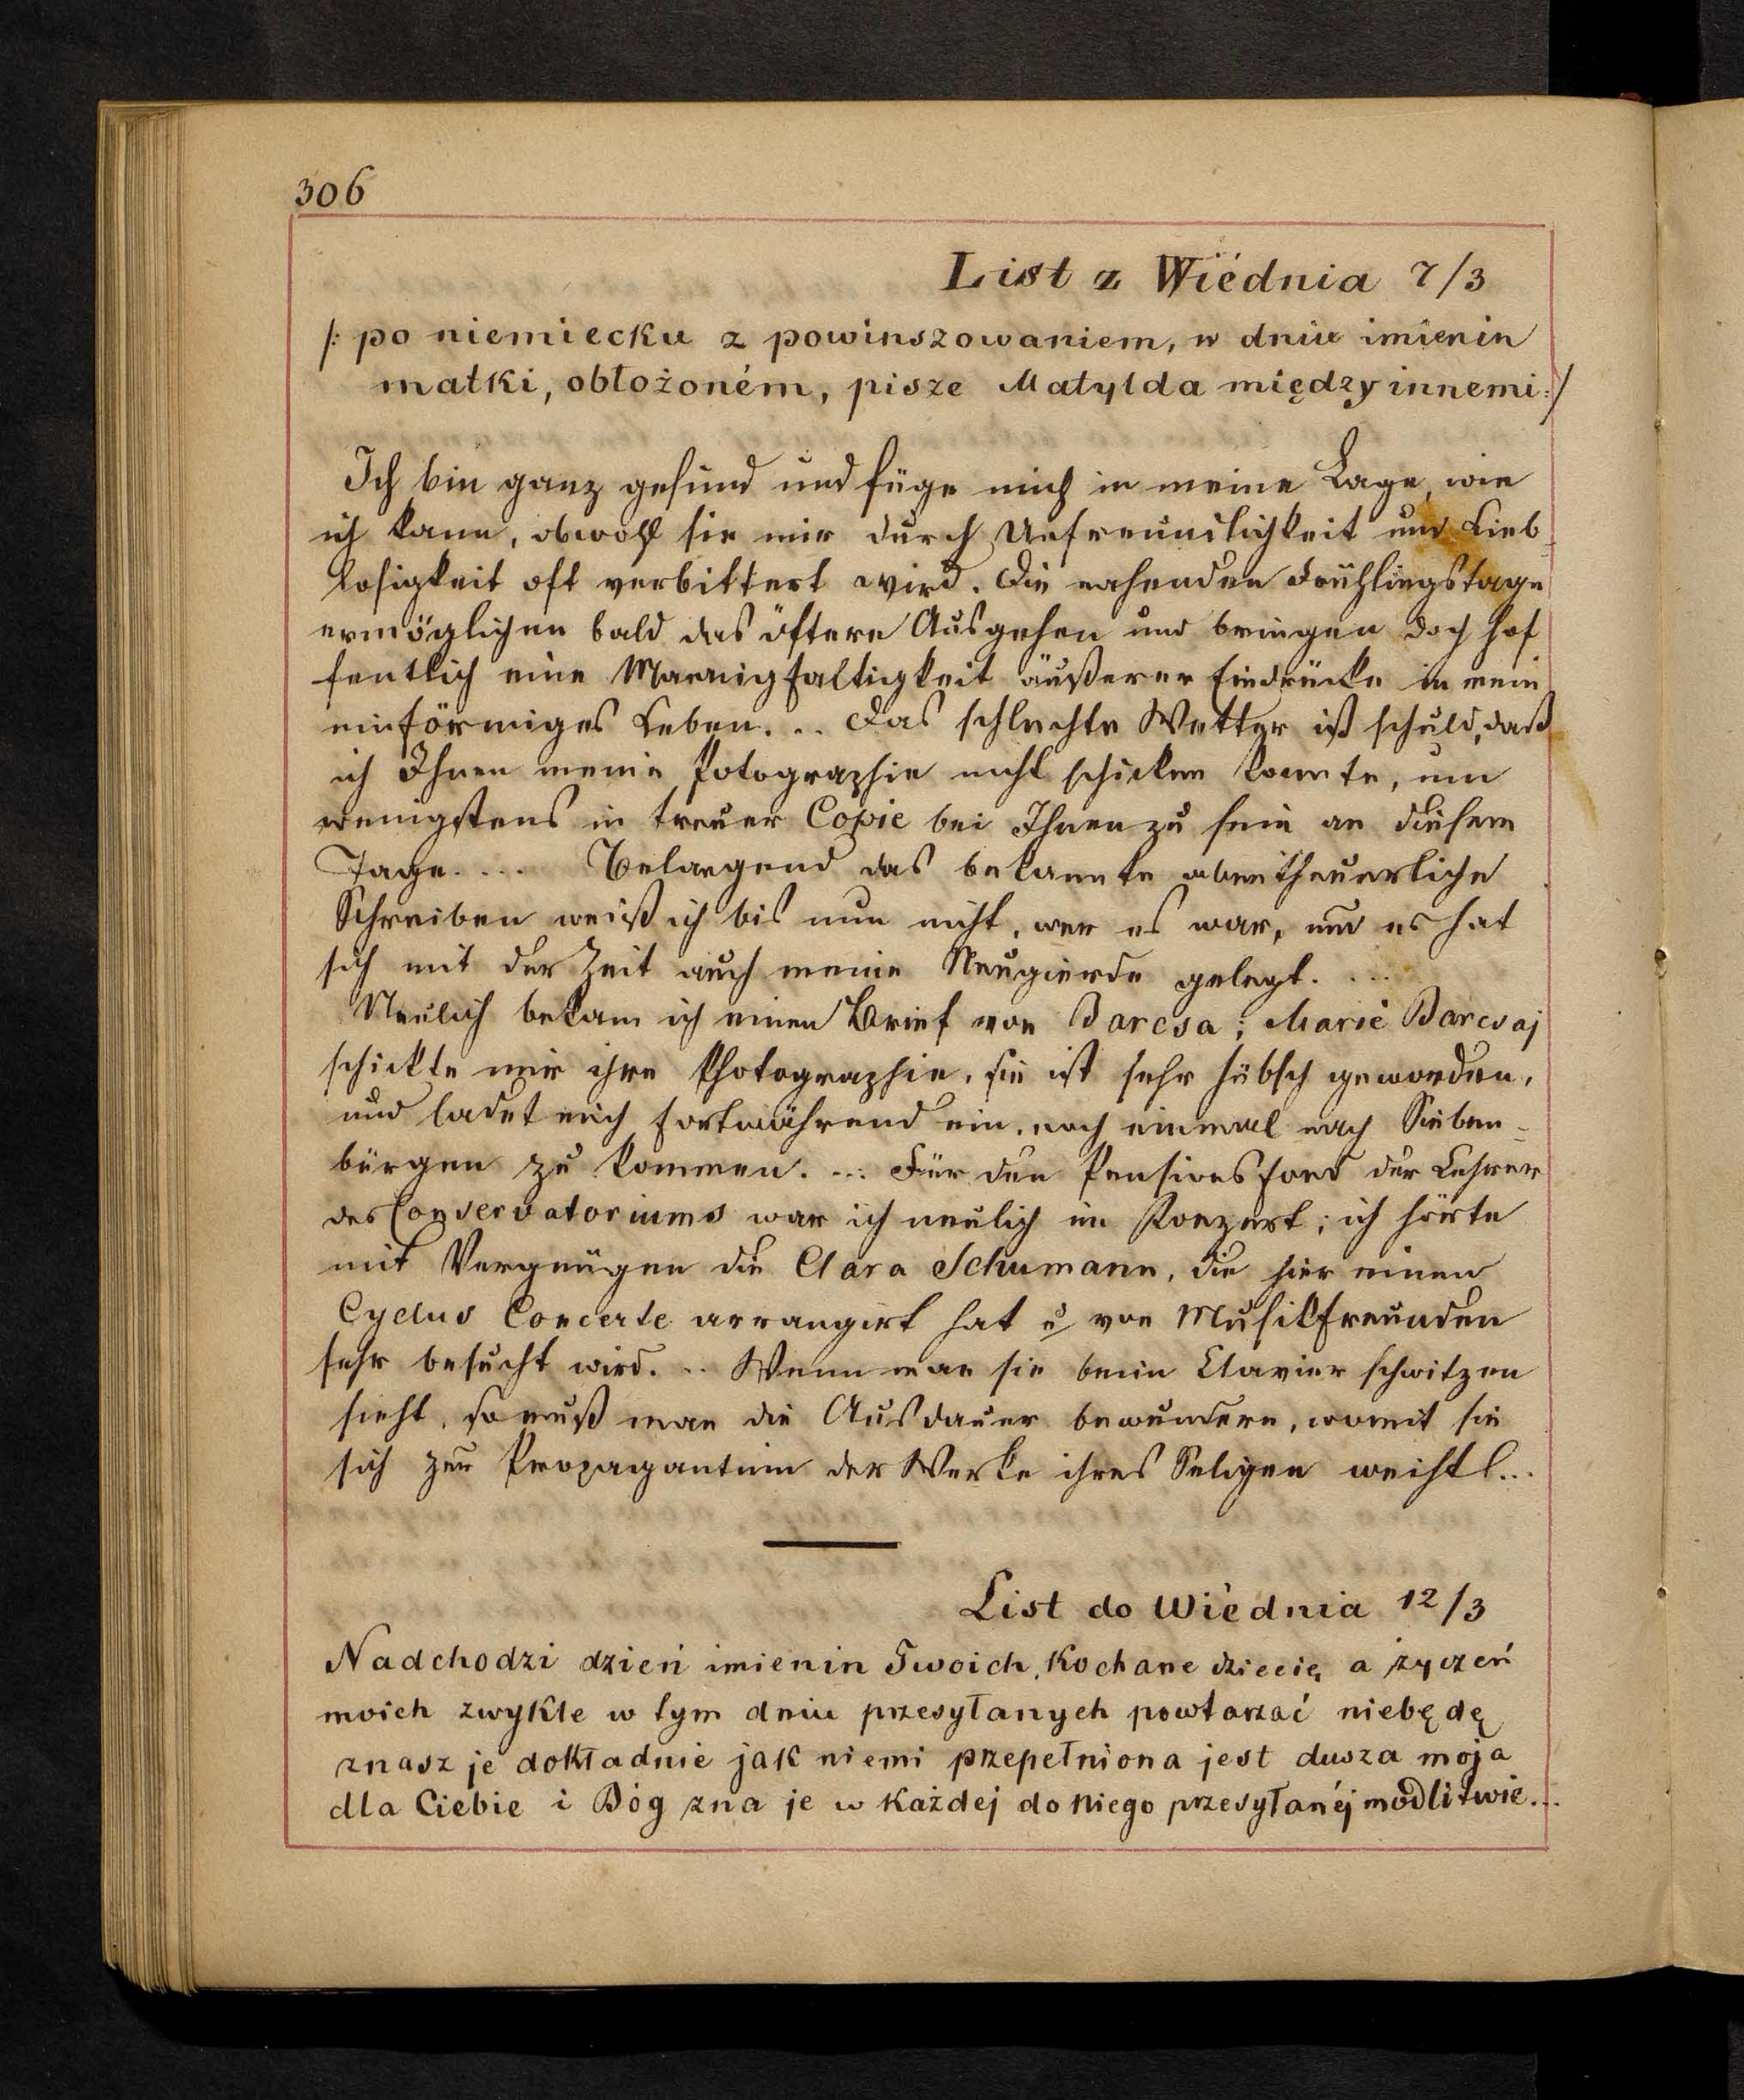 306
List z Wiédnia 7/3
/: po niemiecku z powinszowaniem, w dniu imienin
matki, obłożoném, pisze Matylda między innemi :/
Ich bin ganz gesund und füge mich in meine Lage, wie
ich kann, obwohl sie mir durch Unfreundlichkeit und Lieb
losigkeit oft verbittert wird. Die nahenden Frühlingstage
ermöglichen bald das öftere Ausgehen und bringen doch hof
fentlich eine Mannigfaltigkeit äußerer Eindrücke in mein
einförmiges Leben. .. Das schlechte Wetter ist schuld, daß
ich Ihnen meine Fotographie nicht schicken konnte, um
wenigstens in treuer Copie bei Ihnen zu sein an diesem
Tage. ... Belangend das bekannte abentheuerliche
Schreiben weiß ich bis nun nicht, wer es war, und es hat
sich mit der Zeit auch meine Neugierde gelegt. ...
Neulich bekam ich einen Brief von Barcsa; Marie Barcsaj
schickte mir ihre Photographie, sie ist sehr hübsch geworden,
und ladet mich fortwährend ein, noch einmal nach Sieben-
bürgen zu kommen. ... Für den Pensionsfond der Lehrer
des Conservatoriums war ich neulich im Konzert; ich hörte
mit Vergnügen die Clara Schumann, die hier einen
Cyclus Concerte arrangirt hat u von Musikfreunden
sehr besucht wird. .. Wenn man sie beim Clavier schwitzen
sieht, so muß man die Ausdauer bewundern, womit sie
sich zur Propagantin der Werke ihres Seligen weiht ...
List do Wiédnia 12/3
Nadchodzi dzień imienin Twoich, Kochane dziecię a życzeń
moich zwykle w tym dniu przesyłanych powtarzać niebędę
znasz je dokładnie jak niemi przepełniona jest dusza moja
dla Ciebie i Bóg zna je w każdej do Niego przesyłanéj modlitwie...